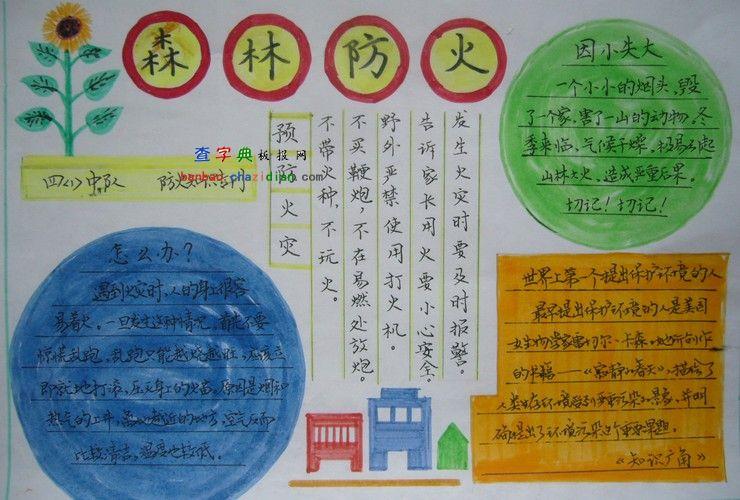 森林防火
四(1)中队
查字典板报网
banbao.chazidian.com
预防火灾
发生火灾时要及时报警。
告诉家长用火要小心安全。
野外严禁使用打火机。
不买鞭炮,不在易燃处放炮。
不带火种,不玩火。
因小失大
一个小小的烟头,毁
了一个家,害了一山的动物,冬
季来临,气候干燥,极易引起
山林火火,造成严重后果。
切记!切记!
怎么办?
遇到火灾时,人的身上很容
易着火,一旦发生这种情况,首先不要
惊慌乱跑,乱跑只能越烧越旺,应该立
即就地打滚,压灭身上的火苗。原因是烟和
热气的上升,离地越近的地方,空气反而
比较清洁,温度也较低。
世界上第一个提出保护环境的人
最早提出保护环境的人是美国
女生物学家雷切尔·卡森。她所创作
的书籍——《寂静的春天》,描绘了
人类生存环境受到严重污染的景象,并明
确提出了环境污染这个重要课题。
《知识广角》